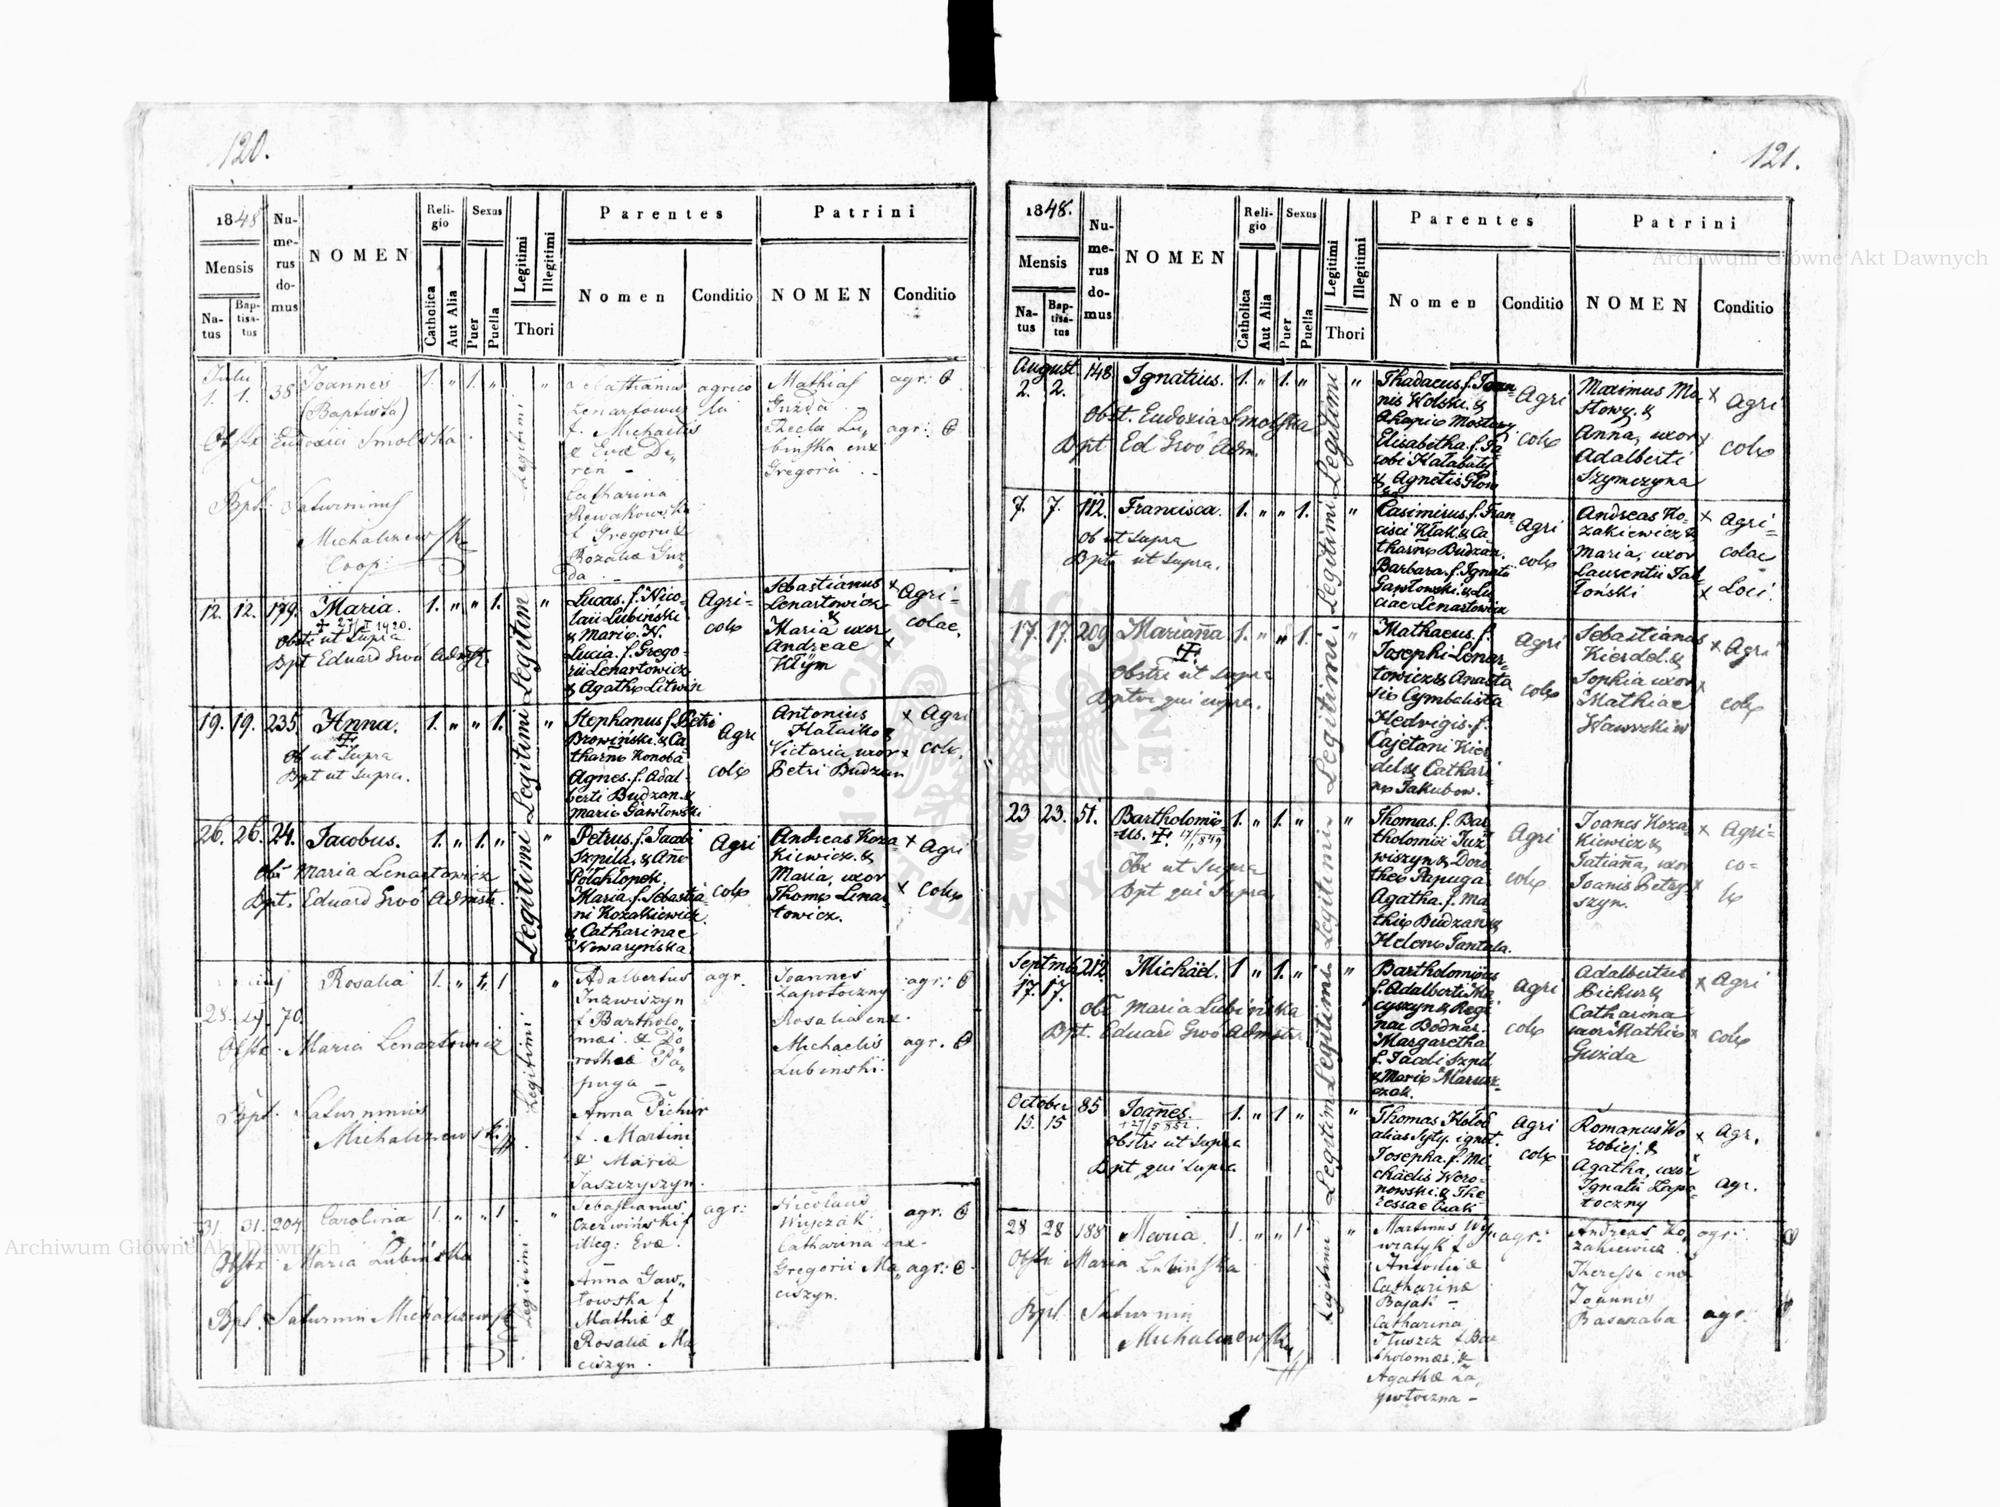 120.
1848
Mensis
Na-
tus
Bap-
tisa-
tus
Nu-
me-
rus
do-
mus
NOMEN
Reli-
gio
Catholica
Aut Alia
Sexus
Puer
Puella
Legitimi
Illegitimi
Thori
Parentes
Nomen
Conditio
Patrini
NOMEN
Conditio
1. 1. 38 Joannes
(Baptista)
Obste Eudoxii Smolska
Bpt. Saturninus
Michaliszewski
Coop:
Legitimi
Sebastianus
Lenartowicz
f. Michaelis
& Evæ De„
ren –
Catharina
f Gregorii &
Rozaliæ Guz
da –
agrico
la
Mathias
Guzda
Thecla Lu„
bińska
Gregorii
agr:
agr:
12. 12. 179. Maria.
obste ut supra
Bpt Eduard Admstr
Legitimi
Lucas. f. Nico-
lai Lubiński
& Mariæ N.
Lucia. f. Grego-
rii Lenartowicz
& Agathæ Litwin
Agri
colæ
Sebastianus
Lenartowicz
&
Maria uxor
Andreae
Kłÿm
× Agri-
colae.
19. 19. 235. Anna.
ob ut supra
Bpt ut supra.
Legitimi
Stephanus f. Petri
Browiński & Ca
tharinæ Konoba
Agnes. f. Adal-
berti Budzan. &
Mariæ Gawłowski
Agri
colæ
Antonius
Hałaiko &
Victoria, uxor
Petri Budzan
× Agri
colæ.
26. 26. 24. Jacobus.
Maria Lenartowicz
Bpt. Eduard Admstr.
Legitimi
Petrus. f. Jacobi
Szpila, & Ann
Półchłopek
Maria. f. Sebastia-
ni Kozakiewicz
& Catharinae
Nowaryńska
Agri
colæ
Andreas Koza
kiewicz. &
Maria, uxor
Thomæ Lenar
towicz.
× Agri
× Colæ
28. 29. 70. Rosalia
Obste. Maria Lenartowicz
Bpt. Saturninus
Michaliszewski
Legitimi
Adalbertus
Juzwiszyn
f Bartholo„
mæi & Do„
rotheæ Pa„
puga –
Anna Pichur
f. Martini
& Mariæ
Jaszczyszyn.
agr.
Joannes
Zapotoczny
Rosalia
Michaelis
Lubinski.
agr:
agr.
31. 31. 204 Carolina
Obste Maria Lubińska
Bpt. Saturnin Michaliszewski
Legitimi
Sebastianus
Czerwiński f
illeg: Evæ.
Anna Gaw„
łowska f
Mathiæ &
Rosaliæ Ma
ciszyn.
agr:
Nicolaus
Wyczak
Catharina
Gregorii Ma„
ciszyn.
agr.
agr:
121.
1848.
Mensis
Na-
tus
Bap-
tisa-
tus
Nu-
me-
rus
do-
mus
NOMEN
Reli-
gio
Catholica
Aut Alia
Sexus
Puer
Puella
Legitimi
Illegitimi
Thori
Parentes
Nomen
Conditio
Patrini
NOMEN
Conditio
August
2. 2. 148 Ignatius.
Obst. Eudoxia Smolska
Bpt Ed Adm.
Legitimi
Thadaeus f. Joan
nis Wolski. &
Elisabetha. f. Ja
cobi Hałabaty
& Agnetis
Agri
colæ
Maximus Mo
stowy. &
Anna, uxor
Adalberti
Szymczyna
× Agri
colæ
7. 7. 112. Francisca.
ob ut supra
Bpt ut supra.
Legitimi
Casimirus. f. Fran
cisci Kłak. & Ca
tharinæ Budzan.
Barbara. f. Ignatii
Gawłowski. & Lu
ciae Lenartowicz
Agri
colæ
Andreas Ko-
zakiewicz &
Maria, uxor
Laurentii Jab
łoński
× Agri-
colae
× Loci.
17. 17. 209 Mariaña
Obstri ut supra
Bptoi qui supra.
Legitimi
Mathaeus. f.
Josephi Lenar-
towicz & Anasta
siæ Cymbalista
Hedvigis. f.
Cajetani Kier
del & Cathari-
næ Jakubow.
Agri
colæ
Sebastianus
Kierdel. &
Sophia uxor
Mathiae
Wawrzkiw
× Agri
colæ
23 23. 51. Bartholomæ-
us.
Obx ut supra
Bpt qui supra
Legitimi
Thomas. f. Bar
tholomæi Juz
wiszyn & Doro
theæ Papuga
Agatha. f. Ma-
thiæ Budzan &
Helenæ Pantala.
Agri
colæ
Joanes Koza
kiewicz &
Tatiaña, uxor
Joanis Pietry
szyn.
× Agri-
co-
læ
Septmb
17. 17. 212. Michäel.
Maria Lubińska
Bpt. Eduard Admstr
Legitimi
Bartholomæus
f. Adalberti Ska
cyszyn & Regi
nae Bodnar.
Margaretha
f. Jacobi Szpil
& Mariæ Marusz-
czak.
Agri
colæ
Adalbertus
Pichur &
Catharina
uxor Mathiæ
Guzda
× Agri
× colæ
October
15. 15 85 Joañes.
Obstri ut supra
Bpt qui supra
Legitimi
Thomas Hołod
alias Syty. ignot.
Josepha. f. Mi-
chäelis Woro-
nowski. & The
ressae Czak
Agri
colæ
Romanus Wo
robiej. &
Agatha, uxor
Ignatii Zapo-
toczny
× Agr.
agr.
28 28 188 Maria.
Obst Maria Lubińska
Bpt. Saturnin
Michaliszewski
Legitimi
Martinus Wy„
wratyk f
Antonii &
Catharinæ
Bajak –
Catharina
Tłuszcz f Bar
tholomæi &
Agathæ Za„
potoczna –
agr:
Andreas Ko„
zakiewicz
Theressa
Joannis
Basaraba
agr:
agr.
Archiwum Główne Akt Dawnych
Archiwum Główne Akt Dawnych
ARCHIWUM GŁÓWNE AKT DAWNYCH